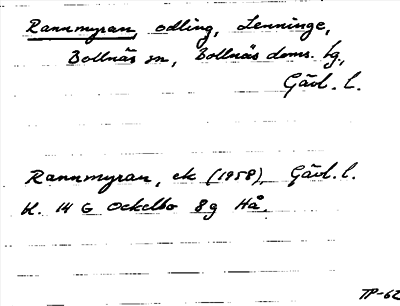 Rannmyran, odling, Lenninge,
Bollnäs sn, Bollnäs doms. tg,
Gävl. l.
Rannmyran, ek (1958), Gävl. l.
bl. 14 G Ockelbo 8g Hå.
TP-62